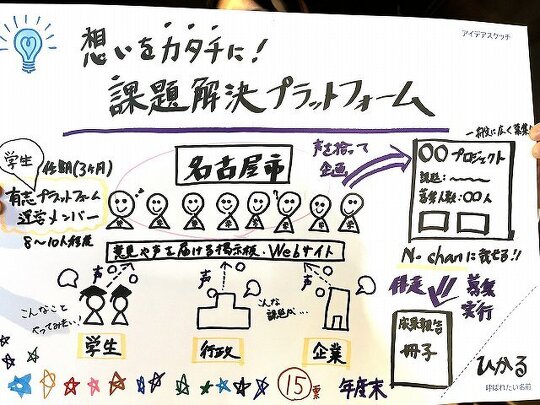 アイデアスケッチ
想いをカタチに!
課題解決プラットフォーム
学生
任期(3ヶ月)
有志プラットフォーム
運営メンバー
8〜10人程度
名古屋市
声を拾って
企画
一般に広く募集!
〇〇プロジェクト
課題:
募集人数:〇〇人
N-chanに載せる!!
意見や声を届ける掲示板・Webサイト
声
声
声
こんなこと
やってみたい!
こんな
課題が…
学生
行政
企業
募集
実行
成果報告
冊子
15票
年度末
ひかる
呼ばれたい名前